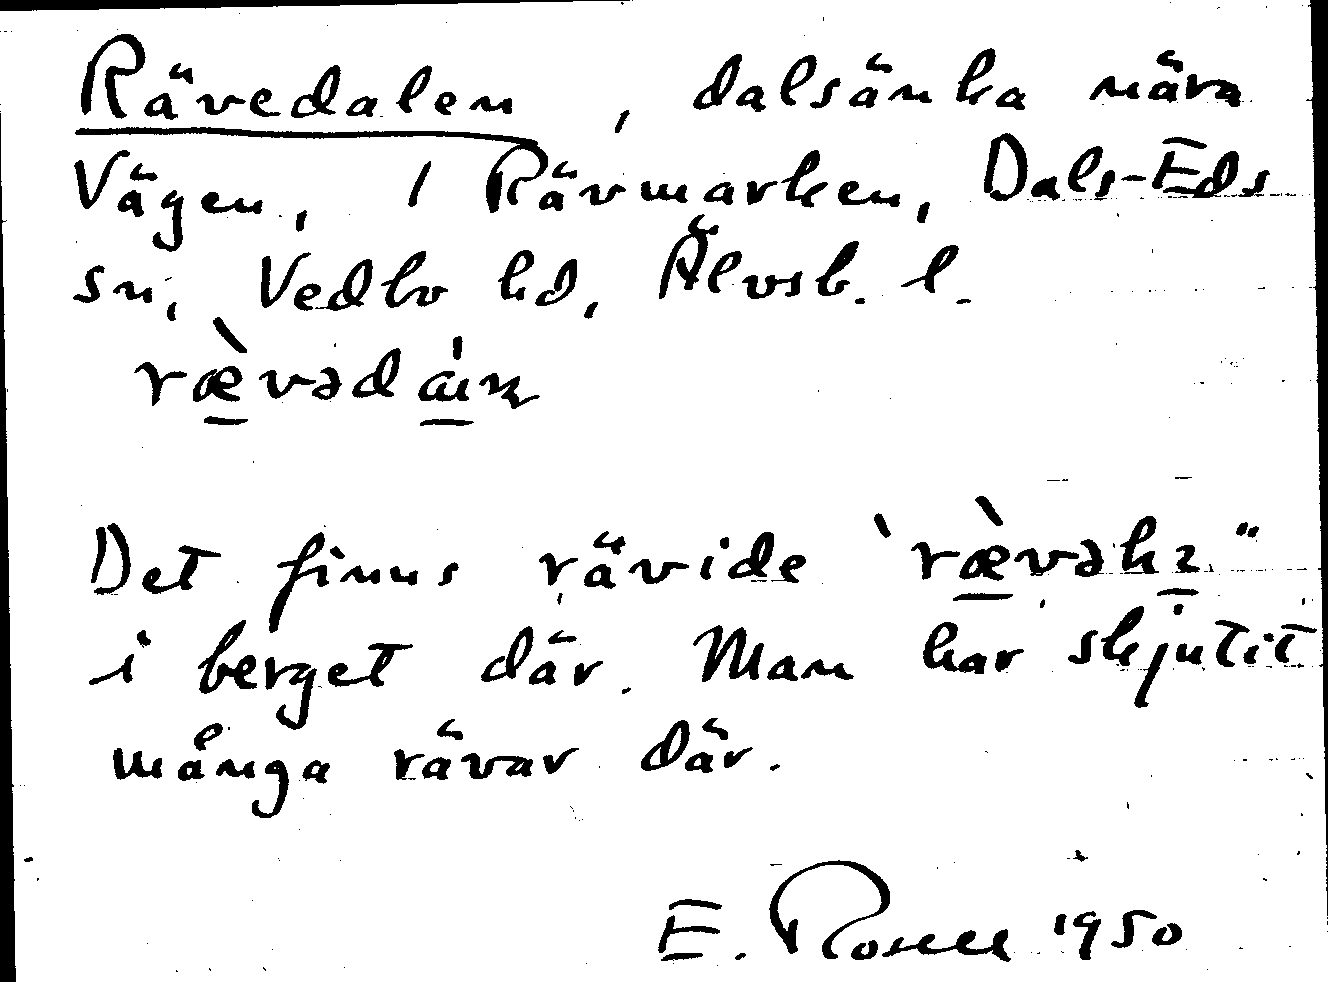 Rävedalen, dalsänka nära
Vägen, 1 Rävmarken, Dals-Eds
sn, Vedbo hd, Älvsb. l.
Det finns rävide
i berget där. Man har skjutit
många rävar där.
E. Rosell 1950